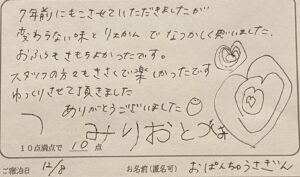 7年前にもこさせていただきましたが
変わらない味とりょかんでなつかしく思いました。
おふろもきもちよかったです。
スタッフの方々もきさくで楽しかったです
ゆっくりさせて頂きました
ありがとうございました
みりおとずま
10点満点で 10 点
ご宿泊日 12/8 お名前(匿名可) おぱんちゅうさぎん